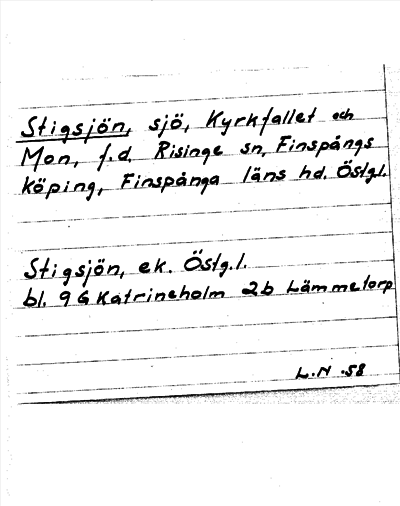 Stigsjön, sjö, Kyrkfallet och
Mon, f.d. Risinge sn, Finspångs
köping, Finspånga läns hd. Östg.l.
Stigsjön, ek. Östg.l.
bl. 9G Katrineholm 2b Lämmetorp
L.N .58